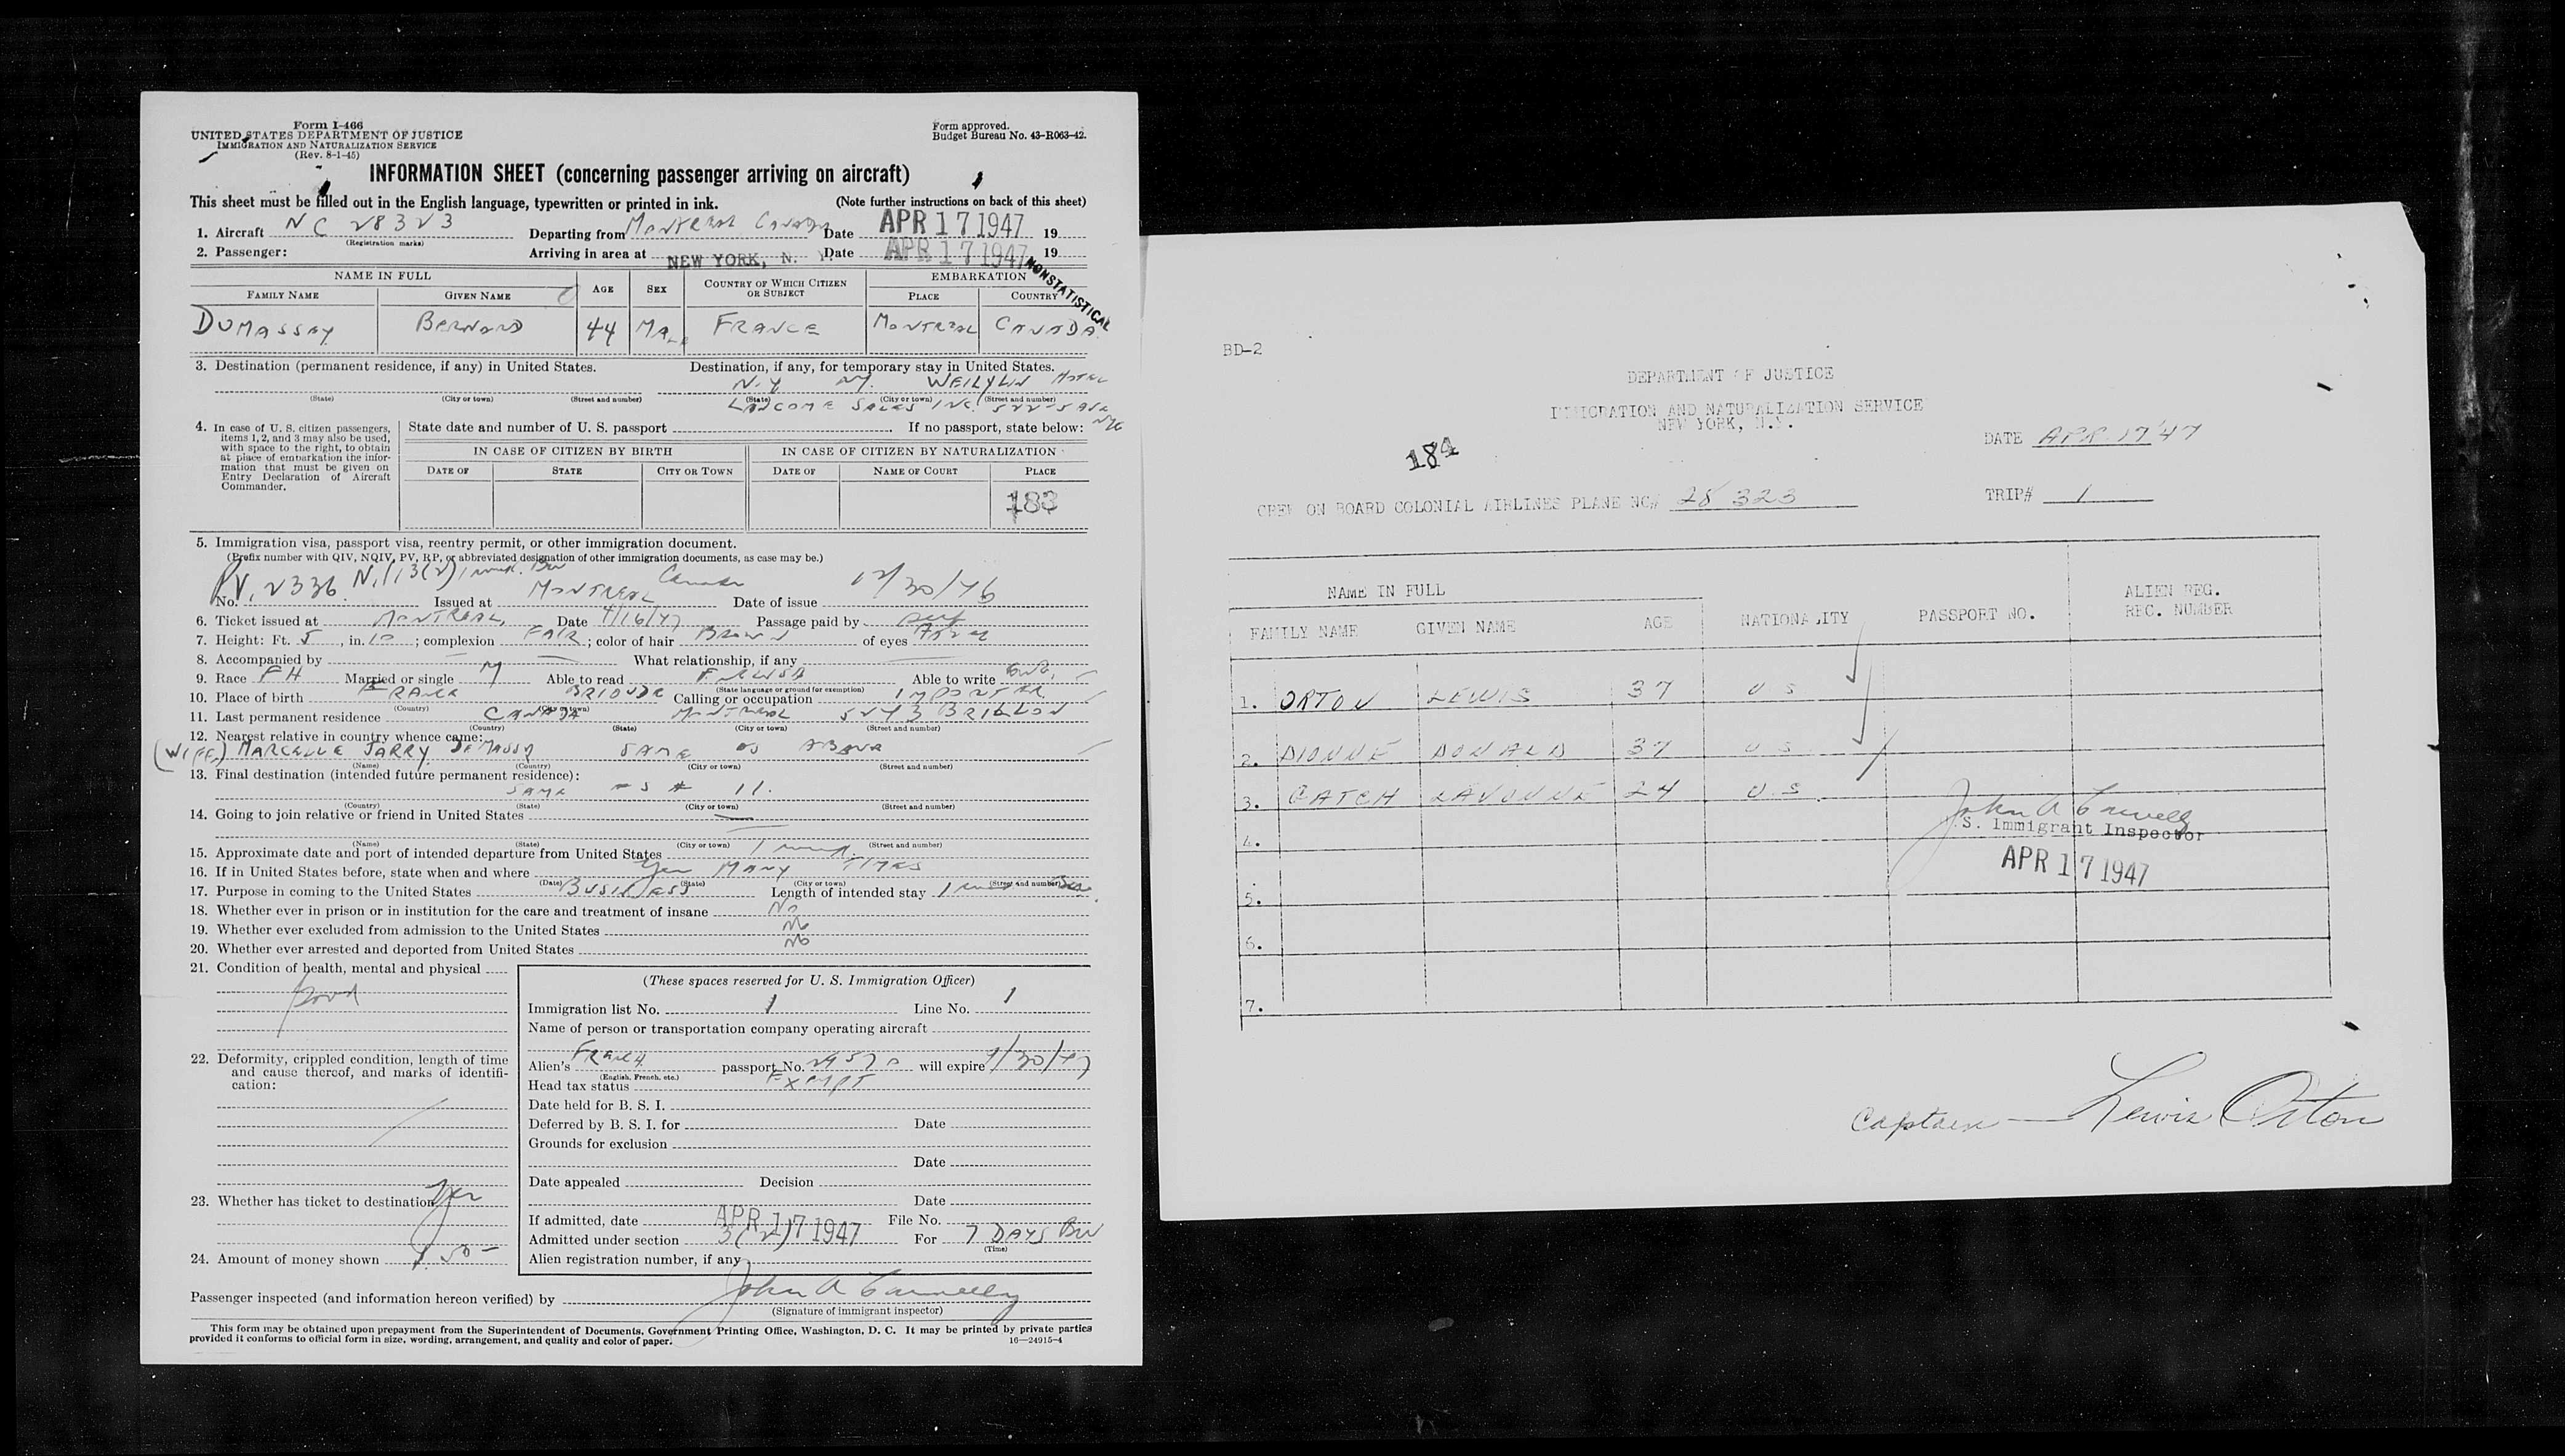 Form I-466
UNITED STATES DEPARTMENT OF JUSTICE
IMMIGRATION AND NATURALIZATION SERVICE
(Rev. 8-1-45)
Form approved.
Budget Bureau No. 43-R063-42.
INFORMATION SHEET (concerning passenger arriving on aircraft)
This sheet must be filled out in the English language, typewritten or printed in ink.
(Note further instructions on back of this sheet)
1. Aircraft NC 28323 Departing from Montreal Canada Date APR 17 1947 19
(Registration marks)
2. Passenger: Arriving in area at NEW YORK, N. Y. Date APR 17 1947 19
NONSTATISTICAL
NAME IN FULL AGE SEX COUNTRY OF WHICH CITIZEN OR SUBJECT EMBARKATION
FAMILY NAME GIVEN NAME PLACE COUNTRY
DUMASSAY BERNARD 44 MALE FRANCE MONTREAL CANADA
3. Destination (permanent residence, if any) in United States. Destination, if any, for temporary stay in United States.
N.Y. NY. WEILYLIN HOTEL
(State) (City or town) (Street and number) (State) (City or town) (Street and number)
LANCOME SALES INC. 522-5 AVE
4. In case of U. S. citizen passengers, items 1, 2, and 3 may also be used, with space to the right, to obtain at place of embarkation the information that must be given on Entry Declaration of Aircraft Commander.
State date and number of U. S. passport If no passport, state below:
IN CASE OF CITIZEN BY BIRTH IN CASE OF CITIZEN BY NATURALIZATION
DATE OF STATE CITY OR TOWN DATE OF NAME OF COURT PLACE
183
5. Immigration visa, passport visa, reentry permit, or other immigration document.
(Prefix number with QIV, NQIV, PV, RP, or abbreviated designation of other immigration documents, as case may be.)
No. PV. 2336 Issued at MONTREAL Canada Date of issue 12/30/46
6. Ticket issued at MONTREAL, Date 4/16/47 Passage paid by self
7. Height: Ft. 5, in. 10; complexion FAIR; color of hair BROWN of eyes
8. Accompanied by — What relationship, if any —
9. Race FH Married or single M Able to read FRENCH Able to write
(State language or ground for exemption)
10. Place of birth FRANCE BRIOUDE Calling or occupation IMPORTER
(Country) (City or town)
11. Last permanent residence CANADA MONTREAL 5243 BRILLON
(Country) (State) (City or town) (Street and number)
12. Nearest relative in country whence came:
(WIFE) MARCELLE JARRY DUMASSY SAME AS ABOVE
(Name) (Country) (City or town) (Street and number)
13. Final destination (intended future permanent residence):
SAME AS # 11.
(Country) (State) (City or town) (Street and number)
14. Going to join relative or friend in United States —
(Name) (State) (City or town) (Street and number)
15. Approximate date and port of intended departure from United States
16. If in United States before, state when and where Yes MANY TIMES
(Date) (State) (City or town) (Street and number)
17. Purpose in coming to the United States BUSINESS Length of intended stay
18. Whether ever in prison or in institution for the care and treatment of insane No
19. Whether ever excluded from admission to the United States No
20. Whether ever arrested and deported from United States No
21. Condition of health, mental and physical
Good
22. Deformity, crippled condition, length of time and cause thereof, and marks of identification:
23. Whether has ticket to destination Yes
24. Amount of money shown $50 -
(These spaces reserved for U. S. Immigration Officer)
Immigration list No. 1 Line No. 1
Name of person or transportation company operating aircraft
Alien's FRENCH passport No. will expire
(English, French, etc.)
Head tax status EXEMPT
Date held for B. S. I.
Deferred by B. S. I. for Date
Grounds for exclusion
Date
Date appealed Decision
Date
If admitted, date APR 17 1947 File No.
Admitted under section 3(2) For 7 DAYS BW
(Time)
Alien registration number, if any
Passenger inspected (and information hereon verified) by John A Connelly
(Signature of immigrant inspector)
This form may be obtained upon prepayment from the Superintendent of Documents, Government Printing Office, Washington, D. C. It may be printed by private parties
provided it conforms to official form in size, wording, arrangement, and quality and color of paper. 16—24915-4
BD-2
DEPARTMENT OF JUSTICE
IMMIGRATION AND NATURALIZATION SERVICE
NEW YORK, N.Y.
184
DATE APR 17 '47
CREW ON BOARD COLONIAL AIRLINES PLANE NC# 28323 TRIP# 1
NAME IN FULL
FAMILY NAME GIVEN NAME AGE NATIONALITY PASSPORT NO. ALIEN REG. REC. NUMBER
1. ORTON LEWIS 37 U S
2. DIONNE DONALD 37 U S
3. GATCH LAVONNE 24 U S
John A Connelly
4. S. Immigrant Inspector
APR 17 1947
5.
6.
7.
Captain — Lewis Orton